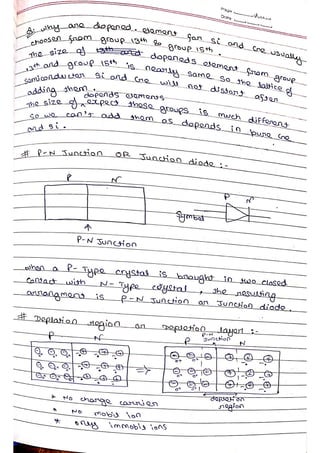 Date
Q: why are dopened. element for si and Cne usually
choosen from group 13th to group 15th.
The size of dopaneds element from group
13th and group 15th is nearly same so the lattice of
Semiconductor Si and Cne will not distort after
adding them.
dopends elements
The size of expect these groups is much different
so we can't add them as dopends in pure Cne
and Si.
# P-N Junction OR Junction diode :-
P N
P N
Symbol
P-N Junction
when a P-Type crystal is brought in two closed
Contact with N-Type coystal, the resulting
arrangment is P-N Junction or Junction diode.
# Deplation region or Depletion layer :-
P N P P-N Junction N
=>
* No charge carrier
depletion
region
* No mobil ion
* only immobils ions